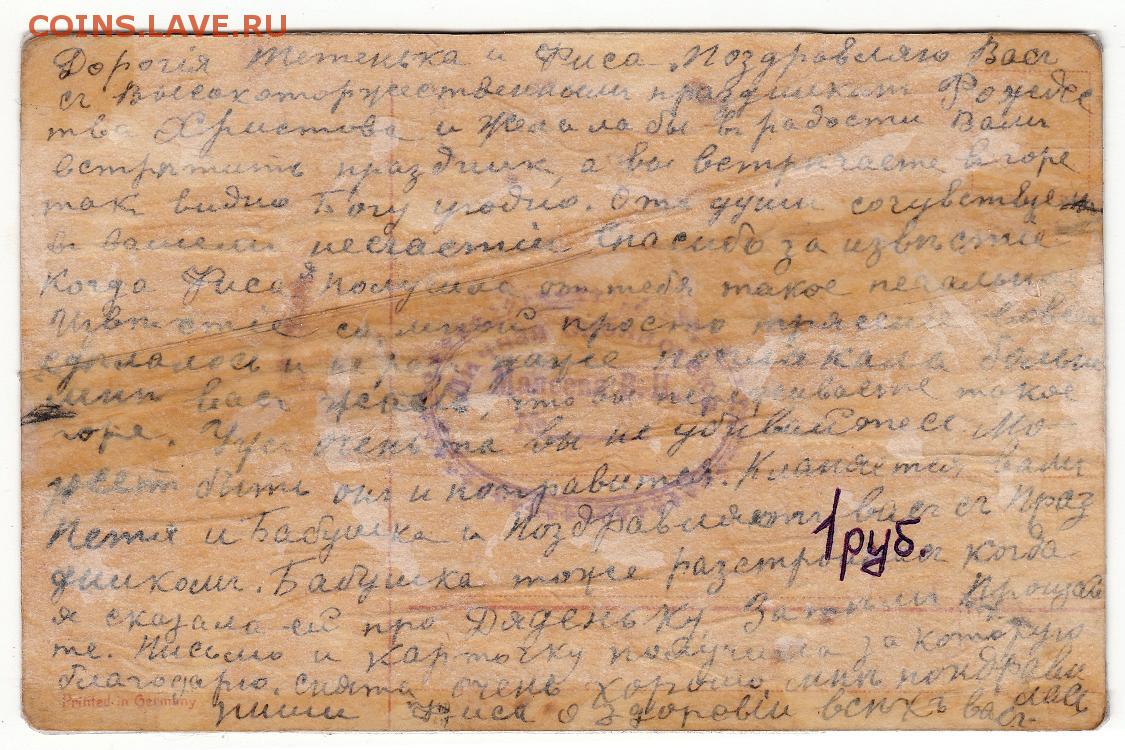 COINS.LAVE.RU
Дорогія Тетенька и Фиса. Поздравляю Васъ
съ Высокоторжественнымъ праздникомъ Рождес
тва Христова и Желала бы въ радости Вамъ
встрѣтить праздникъ, а вы встрѣчаете въ горе
такъ видно Богу угодно. Отъ души сочувствуемъ
въ вашемъ несчастіи Спасибо за извѣстие
Когда Фиса я Получила отъ тебя такое печальн
Извѣстіе со мной просто
сдѣлалось и даже поплакала
мнѣ васъ жалко, что вы переживаете такое
горе. Ужъ очень то вы не убивайтесь Мо-
жетъ быть онъ и поправится. Кланяются вамъ
Петя и Бабушка и Поздравляютъ васъ съ Праз
дникомъ. Бабушка тоже когда
я сказала ей про Дяденьку Затѣмъ Прощай
те. Письмо и карточку получила за которую
благодарю. снята очень хорошо мнѣ пондрави
лась
пиши Фиса о Здоровіи всѣхъ васъ
1 руб.
Printed in Germany